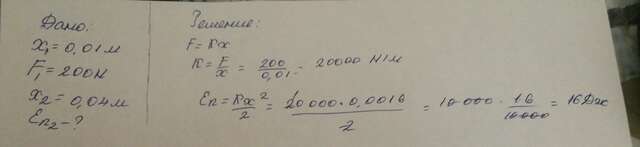 Дано:
x₁ = 0,01 м
F₁ = 200 Н
x₂ = 0,04 м
Eп₂ - ?
Решение:
F = kx
k = F/x = 200/0,01 = 20000 Н/м
Eп = kx²/2 = 20000·0,0016/2 = 10000 · 16/10000 = 16 Дж